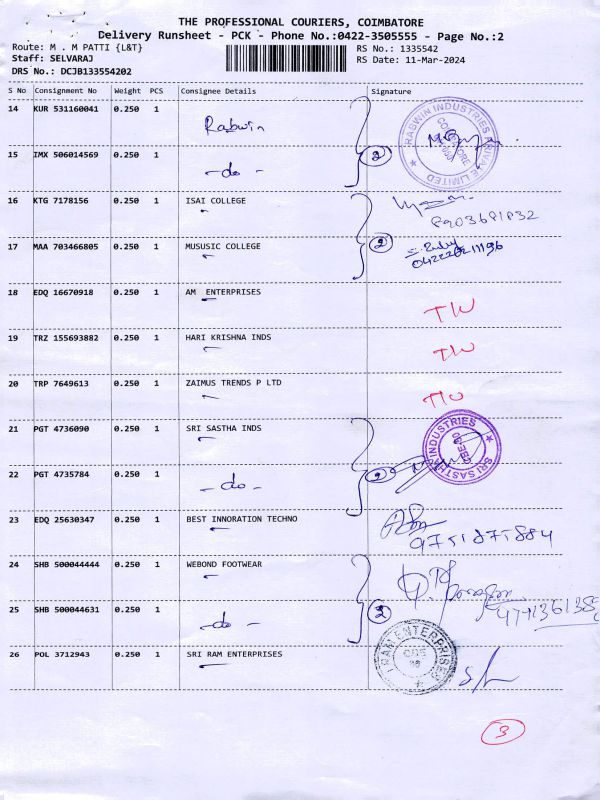 THE PROFESSIONAL COURIERS, COIMBATORE
Delivery Runsheet - PCK - Phone No.:0422-3505555 - Page No.:2
Route: M . M PATTI {L&T}
RS No.: 1335542
Staff: SELVARAJ
RS Date: 11-Mar-2024
DRS No.: DCJB133554202
S No Consignment No Weight PCS Consignee Details Signature
14 KUR 531160041 0.250 1 Rabwin
15 IMX 506014569 0.250 1 -do- 2
RABWIN INDUSTRIES PRIVATE LIMITED
16 KTG 7178156 0.250 1 ISAI COLLEGE
8903681832
17 MAA 703466805 0.250 1 MUSUSIC COLLEGE 2
18 EDQ 16670918 0.250 1 AM ENTERPRISES TW
19 TRZ 155693882 0.250 1 HARI KRISHNA INDS TW
20 TRP 7649613 0.250 1 ZAIMUS TRENDS P LTD TW
21 PGT 4736090 0.250 1 SRI SASTHA INDS
SRI SASTHA INDUSTRIES
22 PGT 4735784 0.250 1 -do- 2
23 EDQ 25630347 0.250 1 BEST INNORATION TECHNO
9751875884
24 SHB 500044444 0.250 1 WEBOND FOOTWEAR
25 SHB 500044631 0.250 1 -do- 2
26 POL 3712943 0.250 1 SRI RAM ENTERPRISES
3